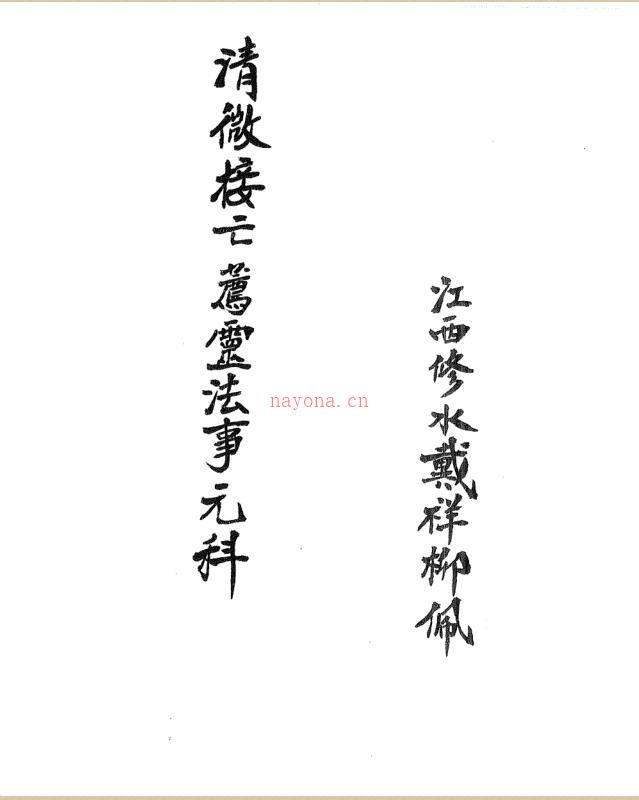 江西修水戴祥柳佩
清微接亡薦靈法事元科
nayona.cn